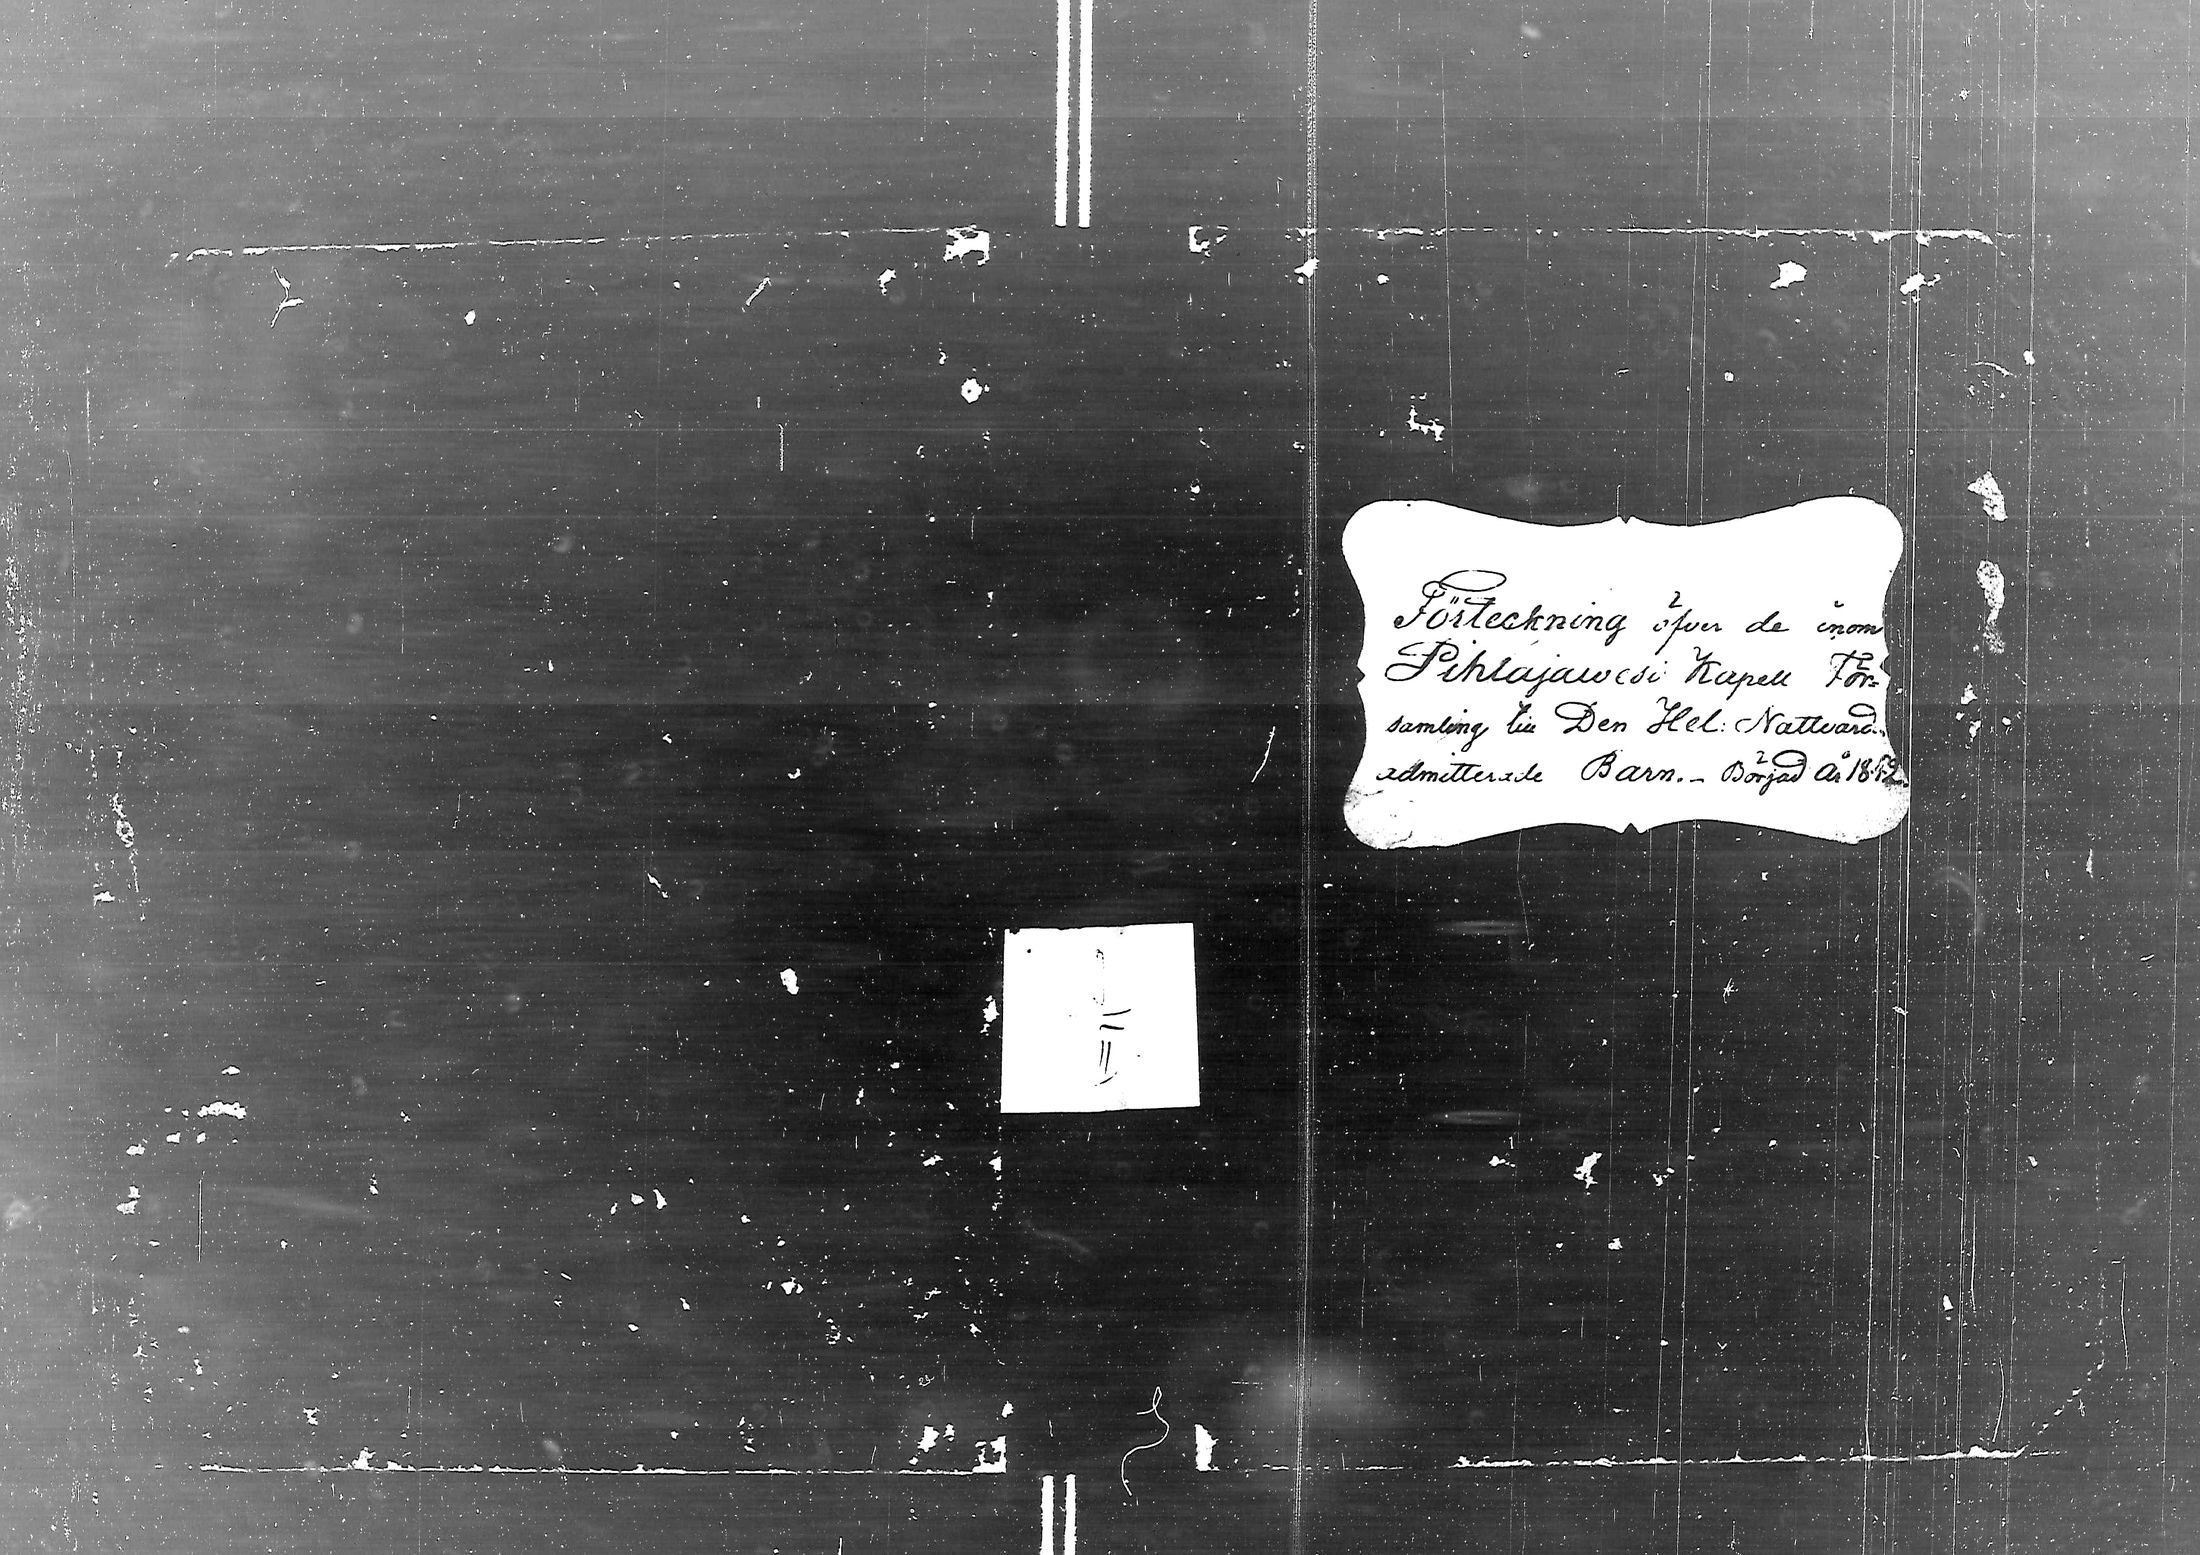 Förteckning öfver de inom
Pihlajawesi Kapell För-
samling till Den Hel: Nattvard
admitterade Barn. - Börjad År 1852.